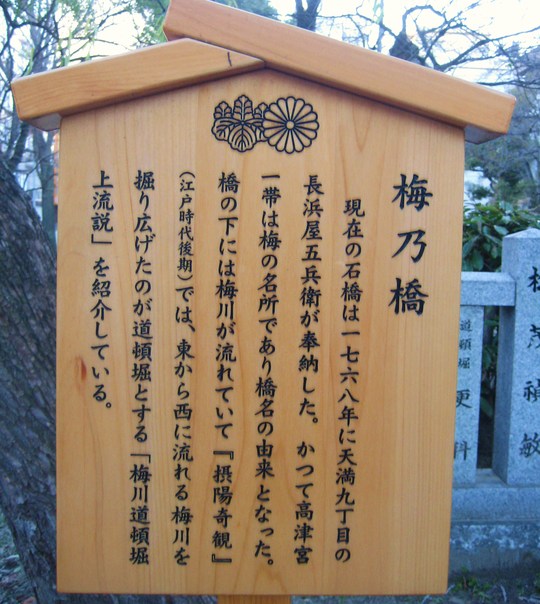 梅乃橋
現在の石橋は一七六八年に天満九丁目の
長浜屋五兵衛が奉納した。かつて高津宮
一帯は梅の名所であり橋名の由来となった。
橋の下には梅川が流れていて『摂陽奇観』
（江戸時代後期）では、東から西に流れる梅川を
掘り広げたのが道頓堀とする「梅川道頓堀
上流説」を紹介している。
道頓堀
更科
茂禎敏